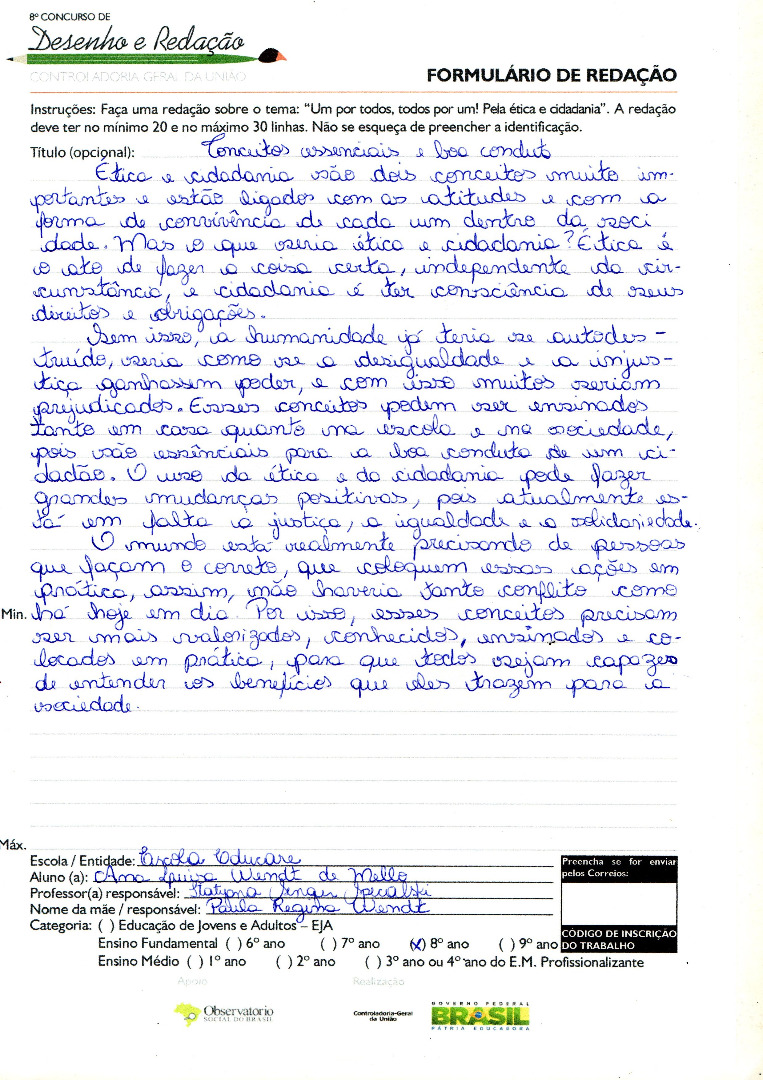 8º CONCURSO DE
Desenho e Redação
CONTROLADORIA GERAL DA UNIÃO
FORMULÁRIO DE REDAÇÃO
Instruções: Faça uma redação sobre o tema: "Um por todos, todos por um! Pela ética e cidadania". A redação
deve ter no mínimo 20 e no máximo 30 linhas. Não se esqueça de preencher a identificação.
Título (opcional): Conceitos essenciais e boa conduta
Ética e cidadania são dois conceitos muito im-
portantes e estão ligados com as atitudes e com a
forma de convivência de cada um dentro da soci
dade. Mas o que seria ética e cidadania? Ética é
o ato de fazer a coisa certa, independente da cir-
cunstância, e cidadania é ter consciência de seus
direitos e obrigações.
Sem isso, a humanidade já teria se autodes-
truído, seria como se a desigualdade e a injus-
tiça ganhassem poder, e com isso muitos seriam
prejudicados. Esses conceitos podem ser ensinados
tanto em casa quanto na escola e na sociedade,
pois são essênciais para a boa conduta de um ci-
dadão. O uso da ética e da cidadania pode fazer
grandes mudanças positivas, pois atualmente es-
tá em falta a justiça, a igualdade e a solidariedade.
O mundo está realmente precisando de pessoas
que façam o correto, que coloquem essas ações em
prática, assim, não haveria tanto conflito como
Min. há hoje em dia. Por isso, esses conceitos precisam
ser mais valorizados, conhecidos, ensinados e co-
locados em prática, para que todos sejam capazes
de entender os benefícios que eles trazem para a
sociedade.
Máx.
Escola / Entidade: Escola Educare
Aluno (a): Ana Luiza Wendt de Mello
Professor(a) responsável: Tatyana
Nome da mãe / responsável: Paula Regina Wendt
Categoria: ( ) Educação de Jovens e Adultos – EJA
Ensino Fundamental ( ) 6º ano ( ) 7º ano (x) 8º ano ( ) 9º ano
Ensino Médio ( ) 1º ano ( ) 2º ano ( ) 3º ano ou 4º ano do E.M. Profissionalizante
Preencha se for enviar
pelos Correios:
CÓDIGO DE INSCRIÇÃO
DO TRABALHO
Apoio Realização
Observatório
SOCIAL DO BRASIL
Controladoria-Geral
da União
GOVERNO FEDERAL
BRASIL
PÁTRIA EDUCADORA